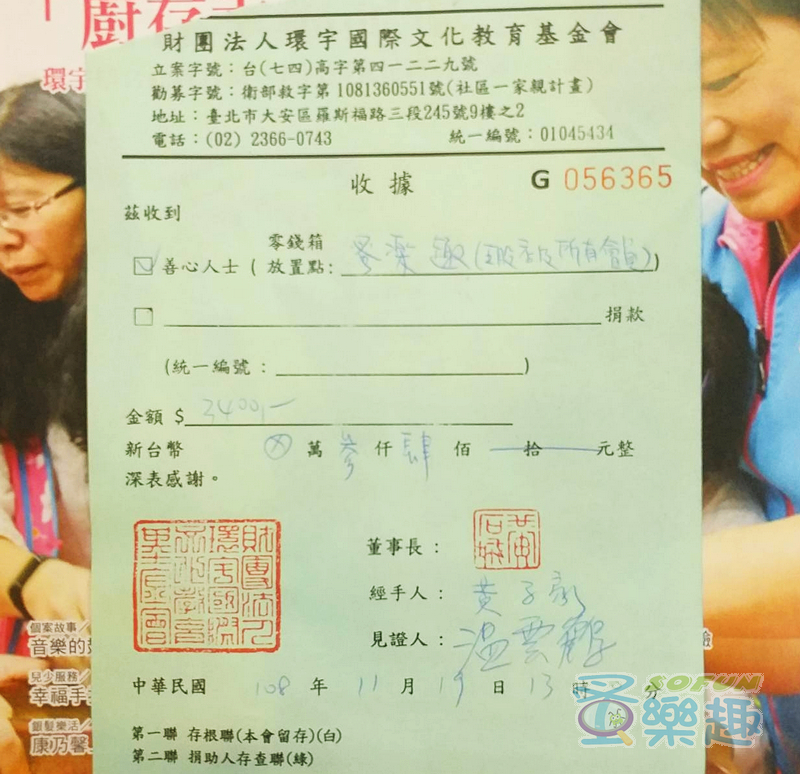 「廚存
環宇
財團法人環宇國際文化教育基金會
立案字號：台(七四)高字第四一二二九號
勸募字號：衛部救字第1081360551號(社區一家親計畫)
地址：臺北市大安區羅斯福路三段245號9樓之2
電話：(02) 2366-0743 統一編號：01045434
收據 G 056365
茲收到
☑善心人士 ( 零錢箱放置點：蚤樂趣( 所有會員) )
□ 捐款
(統一編號： )
金額 $ 3400,-
新台幣 ⊗ 萬 參 仟 肆 佰 拾 元整
深表感謝。
財團法人環宇國際文化教育基金會
董事長：
經手人：黃子
見證人：溫雲
中華民國 108 年 11 月 19 日 13 時 分
第一聯 存根聯(本會留存)(白)
第二聯 捐助人存查聯(綠)
個案故事／
音樂的
兒少服務／
幸福手
銀髮樂活／
康乃馨
SOFUN
蚤樂趣